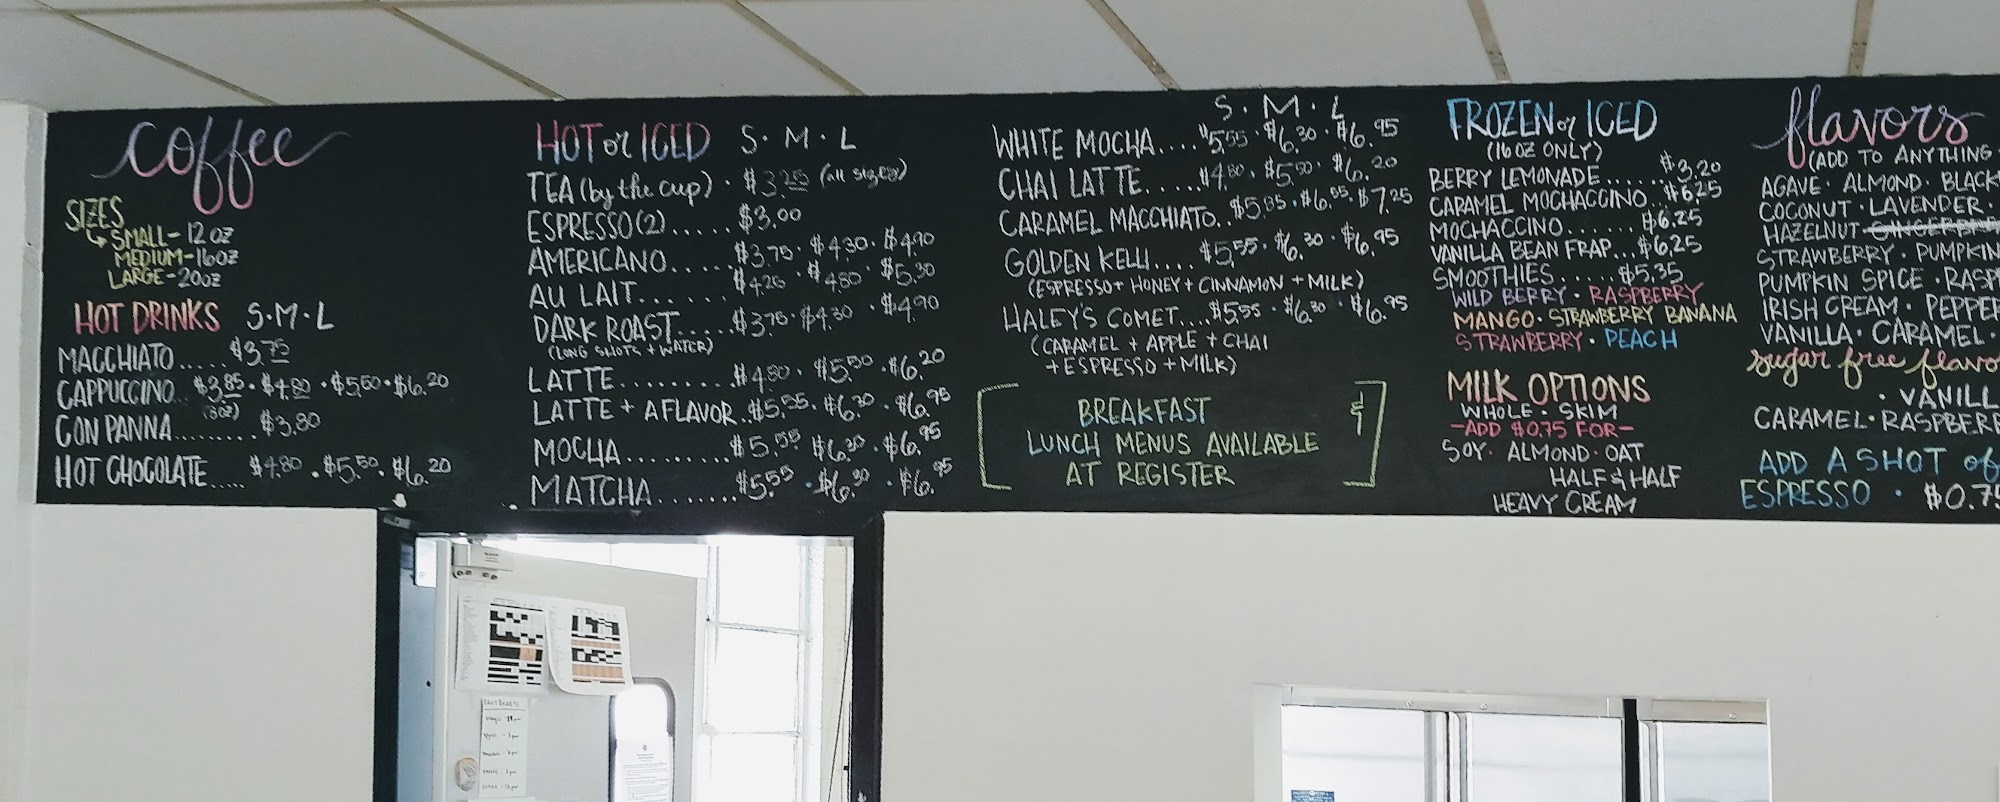 coffee
SIZES
SMALL - 12 OZ
MEDIUM - 16 OZ
LARGE - 20 OZ
HOT DRINKS S · M · L
MACCHIATO..... $3.75
CAPPUCCINO.. $3.85 · $4.80 · $5.50 · $6.20
(8OZ)
CON PANNA......... $3.80
HOT CHOCOLATE..... $4.80 · $5.50 · $6.20
HOT or ICED S · M · L
TEA (by the cup) · $3.25 (all sizes)
ESPRESSO (2)...... $3.00
AMERICANO...... $3.75 · $4.30 · $4.90
AU LAIT....... $4.25 · $4.80 · $5.30
DARK ROAST..... $3.75 · $4.30 · $4.90
(LONG SHOTS + WATER)
LATTE......... $4.80 · $5.50 · $6.20
LATTE + A FLAVOR.. $5.55 · $6.30 · $6.95
MOCHA......... $5.55 $6.30 · $6.95
MATCHA........ $5.55 · $6.30 · $6.95
S · M · L
WHITE MOCHA.... $5.55 · $6.30 · $6.95
CHAI LATTE...... $4.80 · $5.50 · $6.20
CARAMEL MACCHIATO.. $5.85 · $6.55 · $7.25
GOLDEN KELLI.... $5.55 · $6.30 · $6.95
(ESPRESSO + HONEY + CINNAMON + MILK)
HALEY'S COMET.... $5.55 · $6.30 · $6.95
(CARAMEL + APPLE + CHAI
+ ESPRESSO + MILK)
BREAKFAST &
LUNCH MENUS AVAILABLE
AT REGISTER
FROZEN or ICED
(16 OZ ONLY)
BERRY LEMONADE...... $3.20
CARAMEL MOCHACCINO... $6.25
MOCHACCINO....... $6.25
VANILLA BEAN FRAP... $6.25
SMOOTHIES...... $5.35
WILD BERRY · RASPBERRY
MANGO · STRAWBERRY BANANA
STRAWBERRY · PEACH
MILK OPTIONS
WHOLE · SKIM
-ADD $0.75 FOR-
SOY · ALMOND · OAT
HALF & HALF
HEAVY CREAM
flavors
(ADD TO ANYTHING
AGAVE · ALMOND · BLACK
COCONUT · LAVENDER ·
HAZELNUT ·
STRAWBERRY · PUMPKIN
PUMPKIN SPICE · RASP
IRISH CREAM · PEPPER
VANILLA · CARAMEL ·
sugar free flavo
· VANILL
CARAMEL · RASPBERR
ADD A SHOT of
ESPRESSO · $0.75